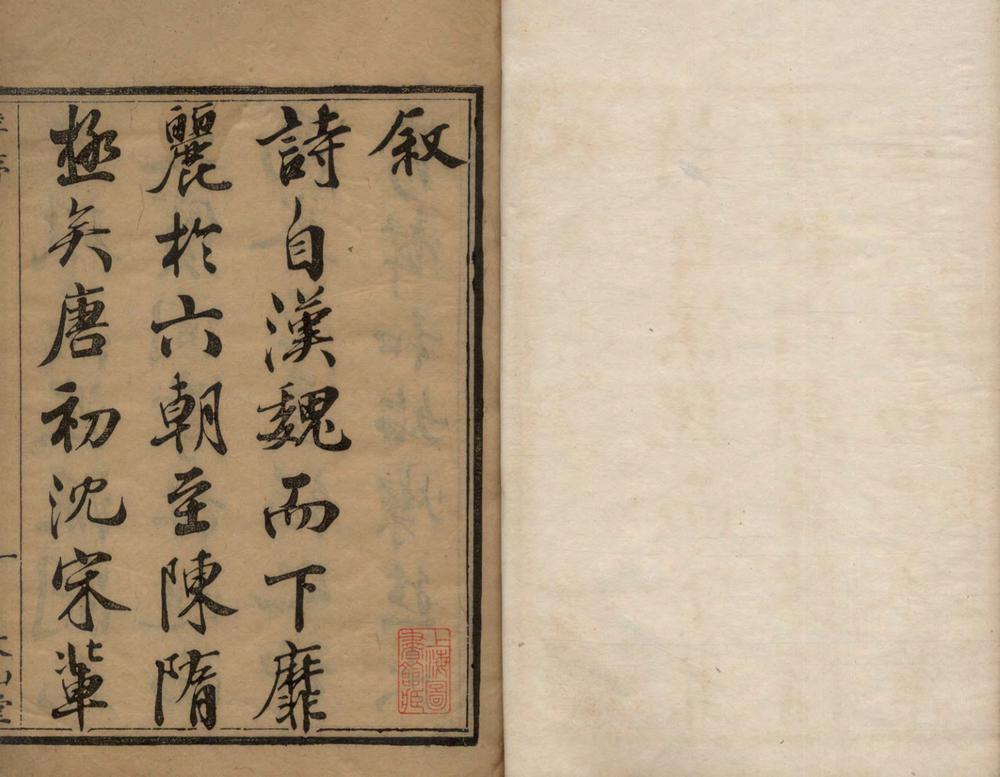 叙
詩自漢魏而下靡
麗於六朝至陳隋
極矣唐初沈宋輩
上海圖
書館藏